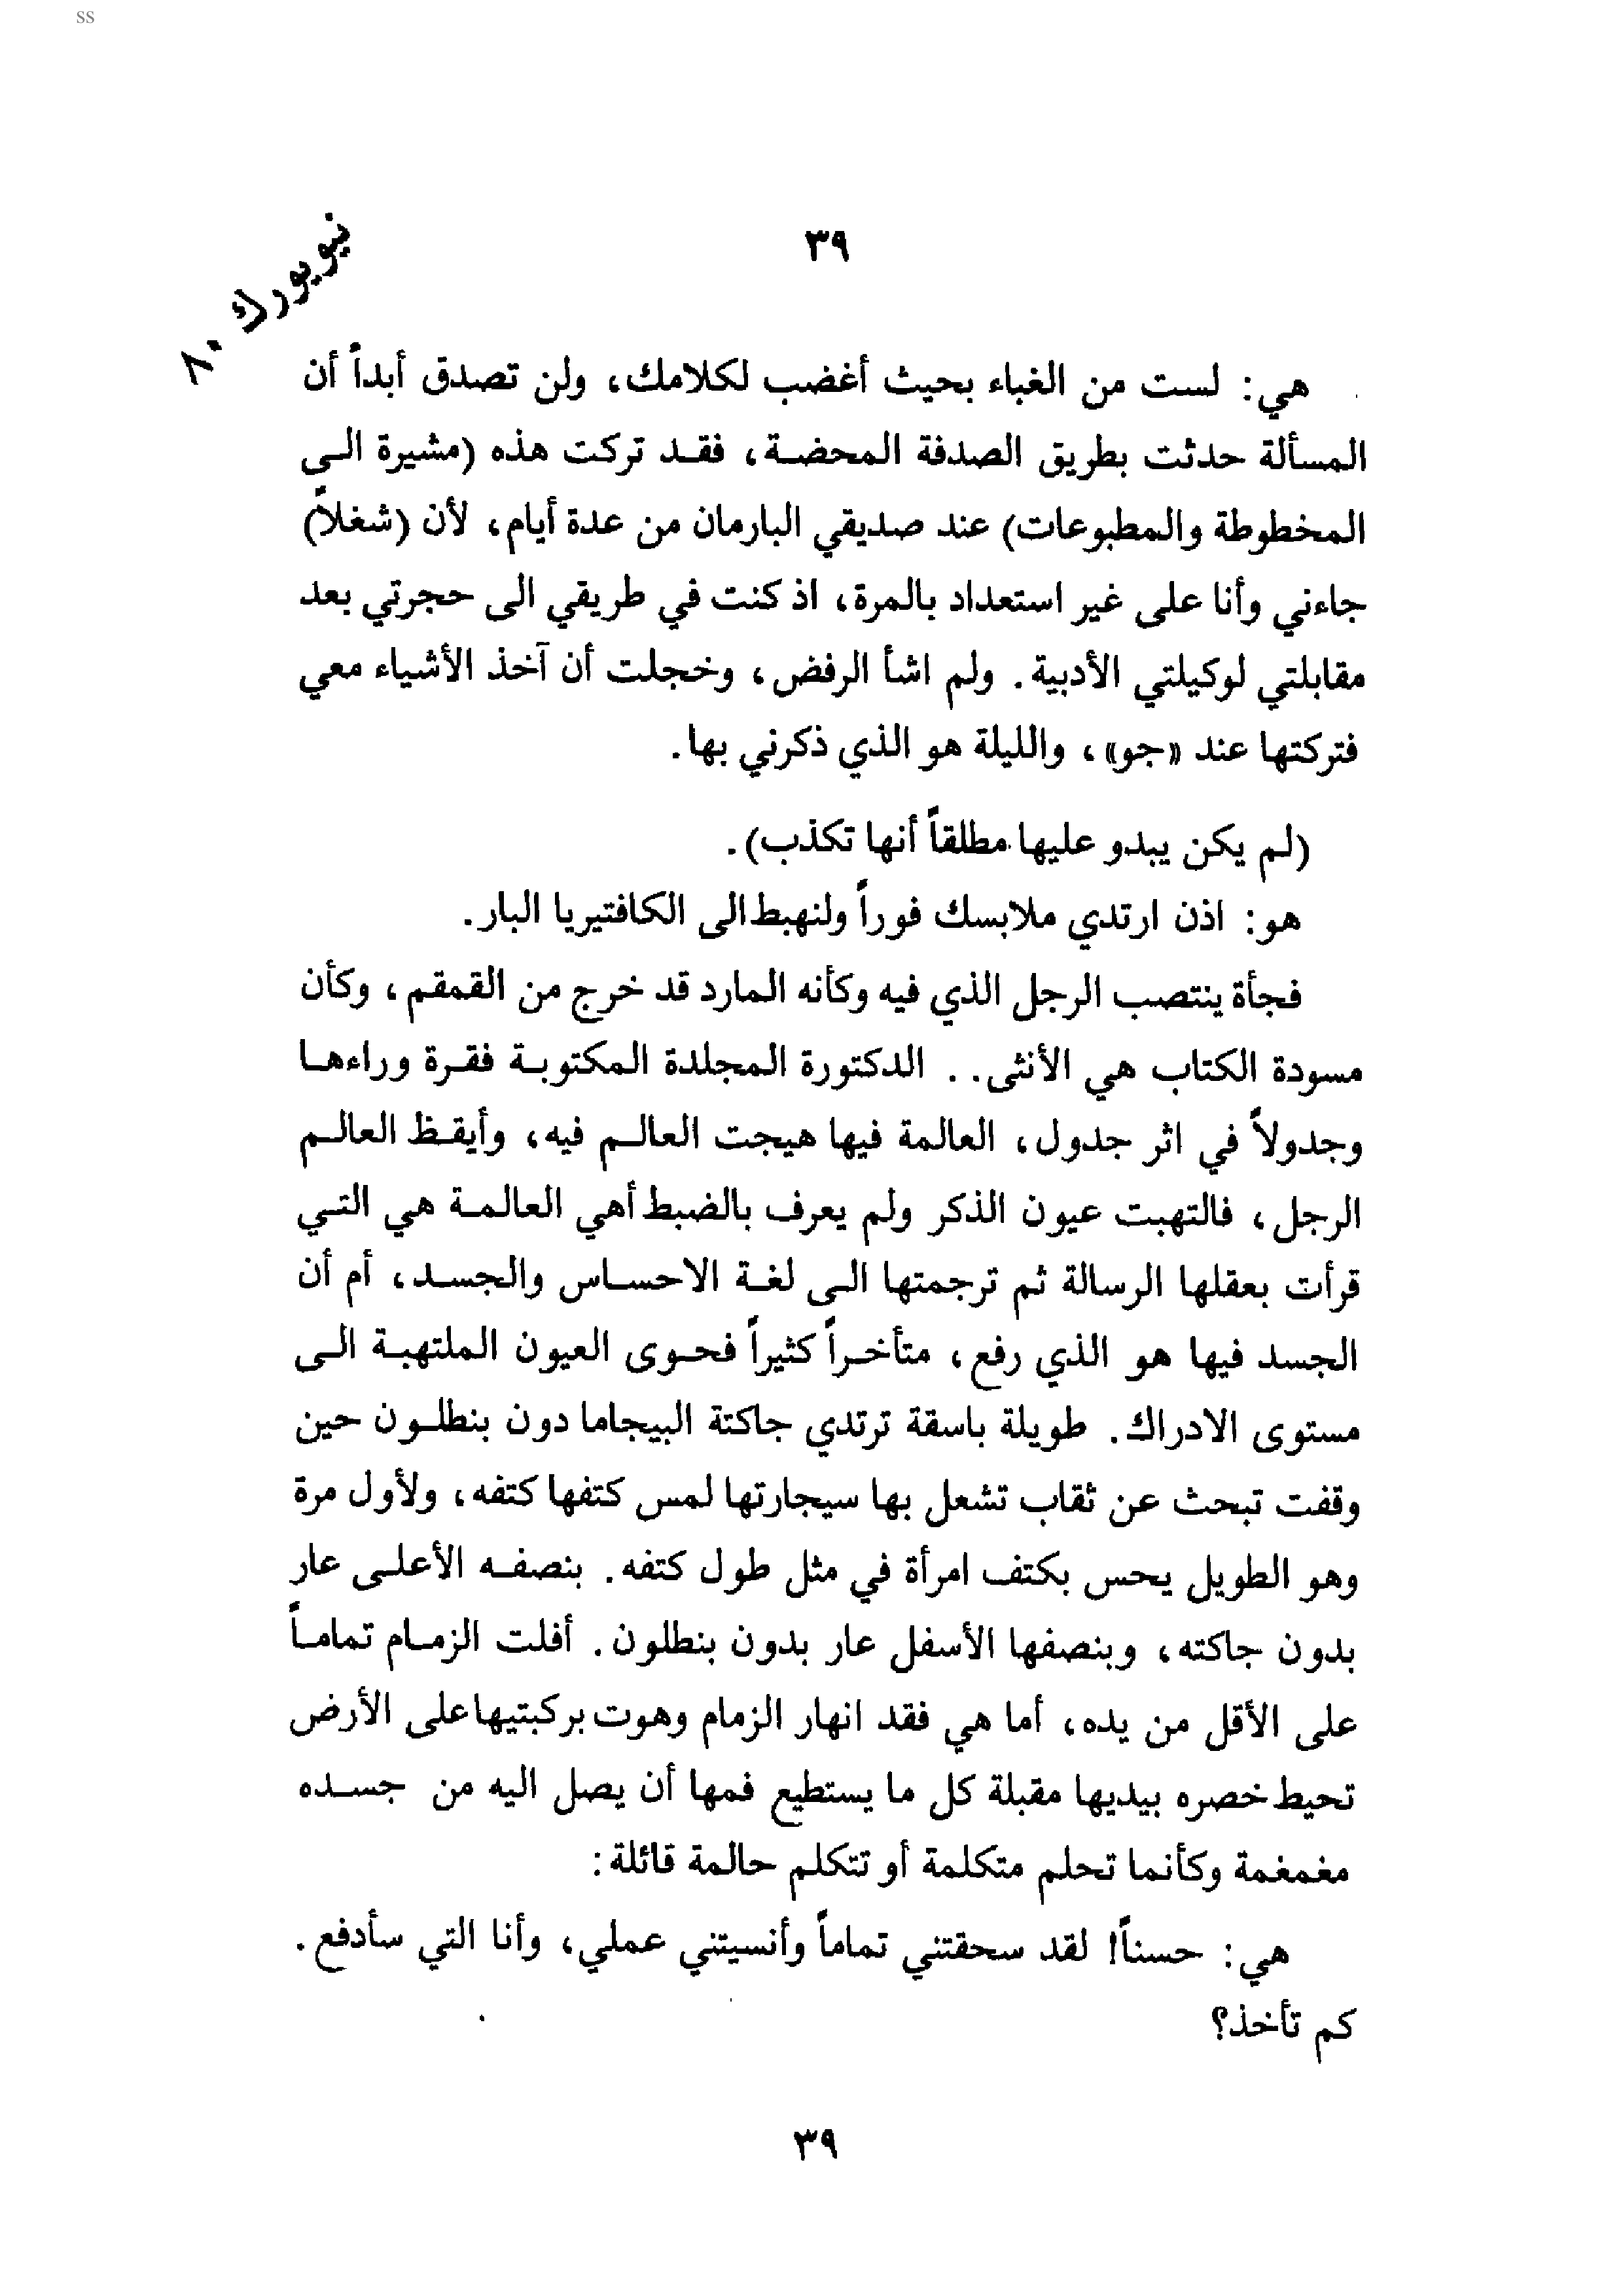 ss
٣٩
نيويورك ٨٠
هي: لست من الغباء بحيث أغضب لكلامك، ولن تصدق أبداً أن
المسألة حدثت بطريق الصدفة المحضة، فقد تركت هذه (مشيرة الى
المخطوطة والمطبوعات) عند صديقي البارمان من عدة أيام، لأن (شغلاً)
جاءني وأنا على غير استعداد بالمرة، اذ كنت في طريقي الى حجرتي بعد
مقابلتي لوكيلتي الأدبية. ولم اشأ الرفض، وخجلت أن آخذ الأشياء معي
فتركتها عند «جو»، والليلة هو الذي ذكرني بها.
(لم يكن يبدو عليها مطلقاً أنها تكذب).
هو: اذن ارتدي ملابسك فوراً ولنهبط الى الكافتيريا البار.
فجأة ينتصب الرجل الذي فيه وكأنه المارد قد خرج من القمقم، وكأن
مسودة الكتاب هي الأنثى.. الدكتورة المجلدة المكتوبة فقرة وراءها
وجدولاً في اثر جدول، العالمة فيها هيجت العالم فيه، وأيقظ العالم
الرجل، فالتهبت عيون الذكر ولم يعرف بالضبط أهي العالمة هي التي
قرأت بعقلها الرسالة ثم ترجمتها الى لغة الاحساس والجسد، أم أن
الجسد فيها هو الذي رفع، متأخراً كثيراً فحوى العيون الملتهبة الى
مستوى الادراك. طويلة باسقة ترتدي جاكتة البيجاما دون بنطلون حين
وقفت تبحث عن ثقاب تشعل بها سيجارتها لمس كتفها كتفه، ولأول مرة
وهو الطويل يحس بكتف امرأة في مثل طول كتفه. بنصفه الأعلى عار
بدون جاكته، وبنصفها الأسفل عار بدون بنطلون. أفلت الزمام تماماً
على الأقل من يده، أما هي فقد انهار الزمام وهوت بركبتيها على الأرض
تحيط خصره بيديها مقبلة كل ما يستطيع فمها أن يصل اليه من جسده
مغمغمة وكأنما تحلم متكلمة أو تتكلم حالمة قائلة:
هي: حسناً! لقد سحقتني تماماً وأنسيتني عملي، وأنا التي سأدفع.
كم تأخذ؟
٣٩